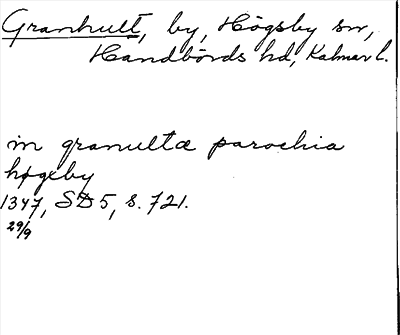 Granhult, by, Högsby sn,
Handbörds hd, Kalmar l.
in granulta parochia
høgeby
1347, SD 5, s. 721.
29/9